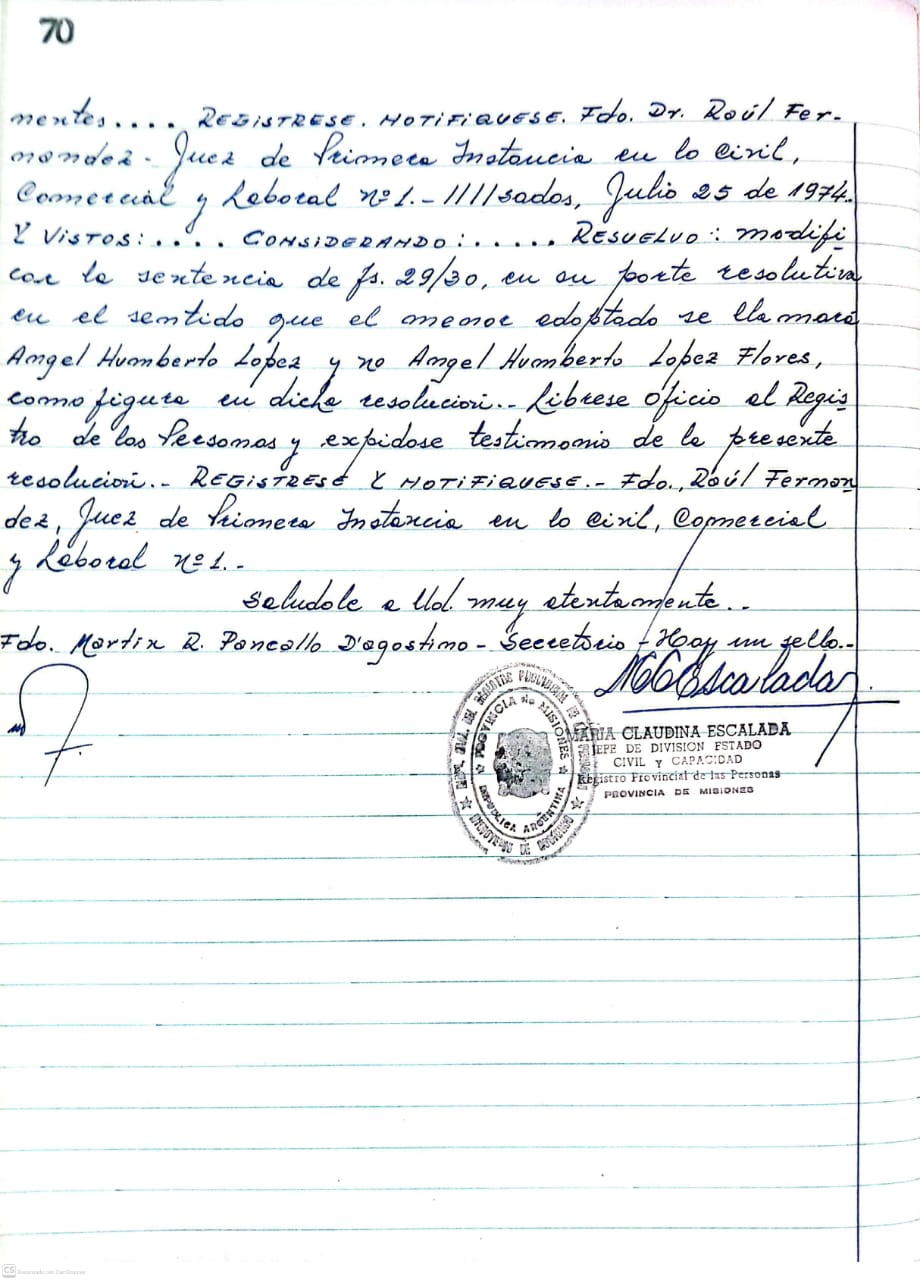 70
nentes.... REGISTRESE. NOTIFIQUESE. Fdo. Dr. Raúl Fer-
nandez - Juez de Primera Instancia en lo Civil,
Comercial y Laboral nº 1.- ////sados, Julio 25 de 1974.
Y VISTOS:.... CONSIDERANDO:..... RESUELVO: modifi
car la sentencia de fs. 29/30, en su parte resolutiva
en el sentido que el menor adoptado se llamará
Angel Humberto Lopez y no Angel Humberto Lopez Flores,
como figura en dicha resolución.- Líbrese oficio al Regis
tro de las Personas y expídase testimonio de la presente
resolución.- REGISTRESE Y NOTIFIQUESE.- Fdo., Raúl Fernan
dez, Juez de Primera Instancia en lo Civil, Comercial
y Laboral nº 1.-
Salúdole a Ud. muy atentamente.-
Fdo. Martin R. Pancallo D'agostino - Secretario - Hay un sello.-
MCEscalada
MARIA CLAUDINA ESCALADA
JEFE DE DIVISION ESTADO
CIVIL y CAPACIDAD
Registro Provincial de las Personas
PROVINCIA DE MISIONES
PROVINCIA de MISIONES
REPUBLICA ARGENTINA
CS Escaneado con CamScanner